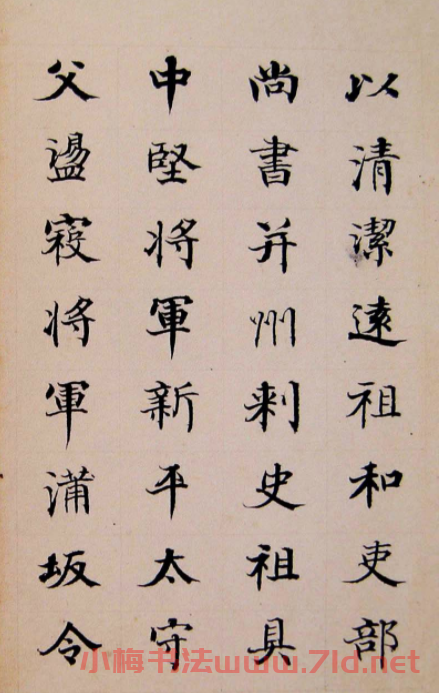 以清潔遠祖和吏部
尚書并州刺史祖具
中堅將軍新平太守
父盪寇將軍蒲坂令
小梅书法www.7ld.net